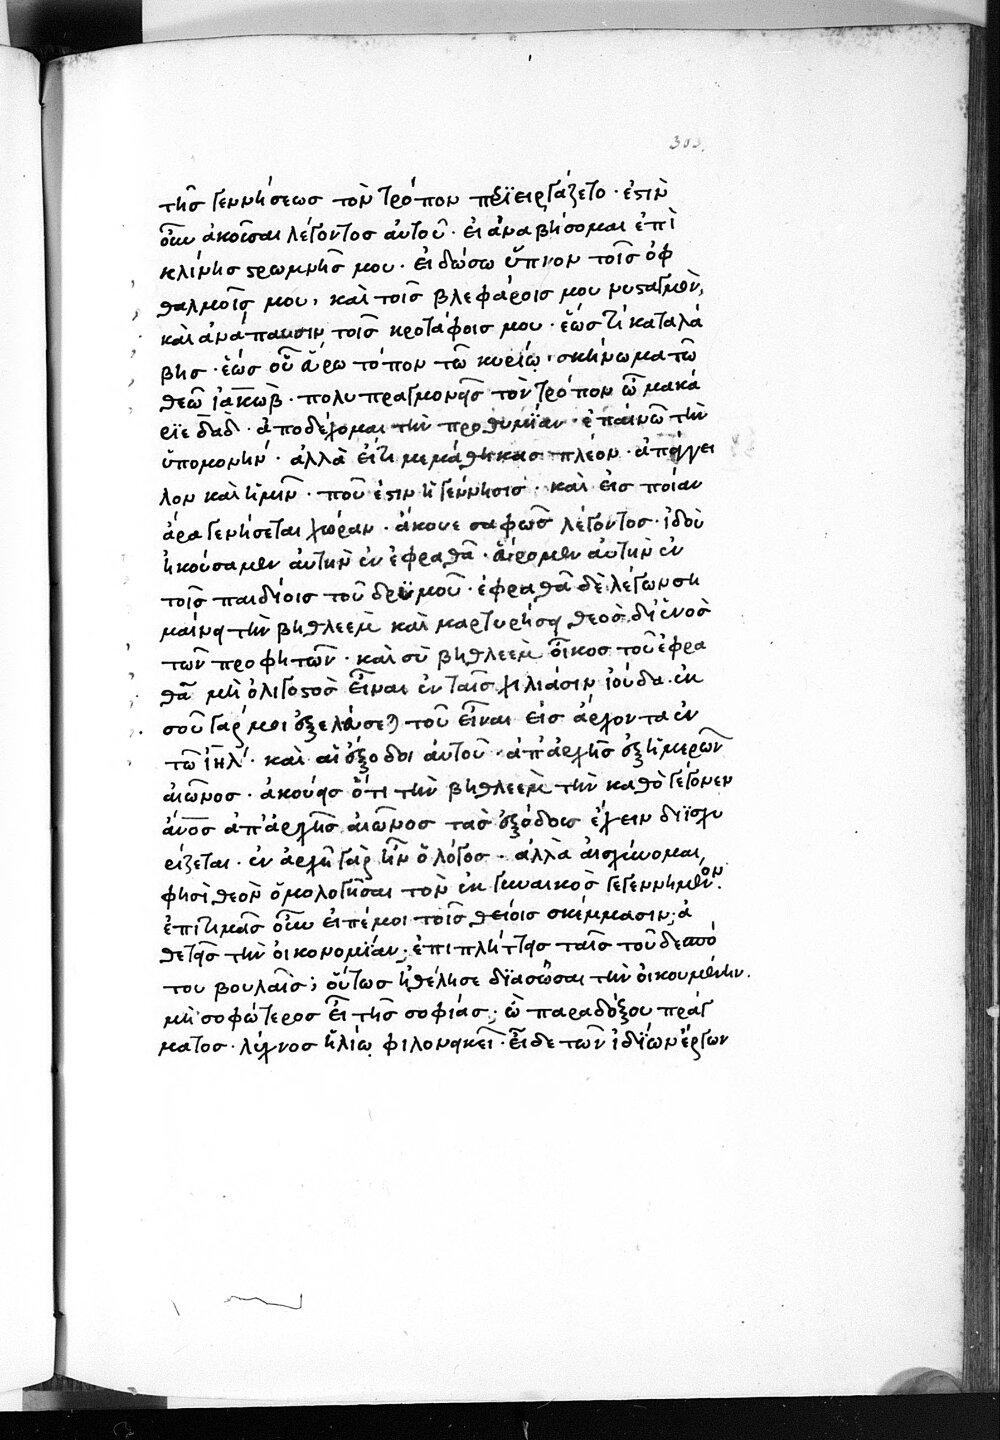 303.
τῆς γεννήσεως τὸν τρόπον περϊειργάζετο · ἐστὶν
οὖν ἀκοῦσαι λέγοντος αὐτοῦ · εἰ ἀναβήσομαι ἐπὶ
κλίνης στρωμνῆς μου · εἰ δώσω ὕπνον τοῖς ὀφ
θαλμοῖς μου, καὶ τοῖς βλεφάροις μου νυσταγμὸν,
καὶ ἀνάπαυσιν τοῖς κροτάφοις μου · ἕως τί καταλά
βης · ἕως οὗ εὕρω τόπον τῶ κυρίῳ · σκήνωμα τῶ
θεῶ ἰακὼβ · πολυπραγμονεῖς τὸν τρόπον ὦ μακά
ριε δαδ · ἀποδέχομαι τὴν προθυμίαν · ἐπαινῶ τὴν
ὑπομονήν · ἀλλὰ εἴ τι μεμάθηκας πλέον · ἀπάγγει
λον καὶ ἡμῖν · ποῦ ἐστιν ἡ γέννησις · καὶ εἰς ποίαν
ἄρα γενήσεται χώραν · ἄκουε σαφῶς λέγοντος · ἰδοὺ
ἠκούσαμεν αὐτὴν ἐν ἐφραθᾶ · εὕρομεν αὐτὴν ἐν
τοῖς παιδίοις τοῦ δρυμοῦ · ἐφραθᾶ δὲ λέγων ση
μαίνει τὴν βηθλεὲμ καὶ μαρτυρήσει θεὸς δι' ἑνὸς
τῶν προφητῶν · καὶ σὺ βηθλεὲμ οἶκος τοῦ ἐφρα
θᾶ μὴ ὀλιγοστὸς εἶναι ἐν ταῖς χιλιάσιν ἰούδα · ἐκ
σοῦ γάρ μοι ἐξελεύσεται τοῦ εἶναι εἰς ἄρχοντα ἐν
τῶ ἰηλ · καὶ αἱ ἔξοδοι αὐτοῦ · ἀπ' ἀρχῆς ἐξ ἡμερῶν
αἰῶνος · ἀκούεις ὅτι τὴν βηθλεὲμ τὴν καθὸ γέγονεν
ἄνος ἀπ' ἀρχῆς αἰῶνος τὰς ἐξόδους ἔχειν διϊσχυ
ρίζεται · ἐν ἀρχῆ γὰρ ἦν ὁ λόγος · ἀλλὰ αἰσχύνομαι
φησὶ θεὸν ὁμολογῆσαι τὸν ἐκ γυναικὸς γεγεννημένον.
ἐπιτιμᾶς οὖν εἰπέ μοι τοῖς θείοις σκέμμασιν; ἀ
θετεῖς τὴν οἰκονομίαν; ἐπιπλήττεις ταῖς τοῦ δεσπό
του βουλαῖς; οὕτως ἠθέλησε διασῶσαι τὴν οἰκουμένην.
μὴ σοφώτερος εἶ τῆς σοφίας; ὢ παραδόξου πράγ
ματος · λύχνος ἡλίῳ φιλονεικεῖ · εἶδε τῶν ἰδίων ἔργων